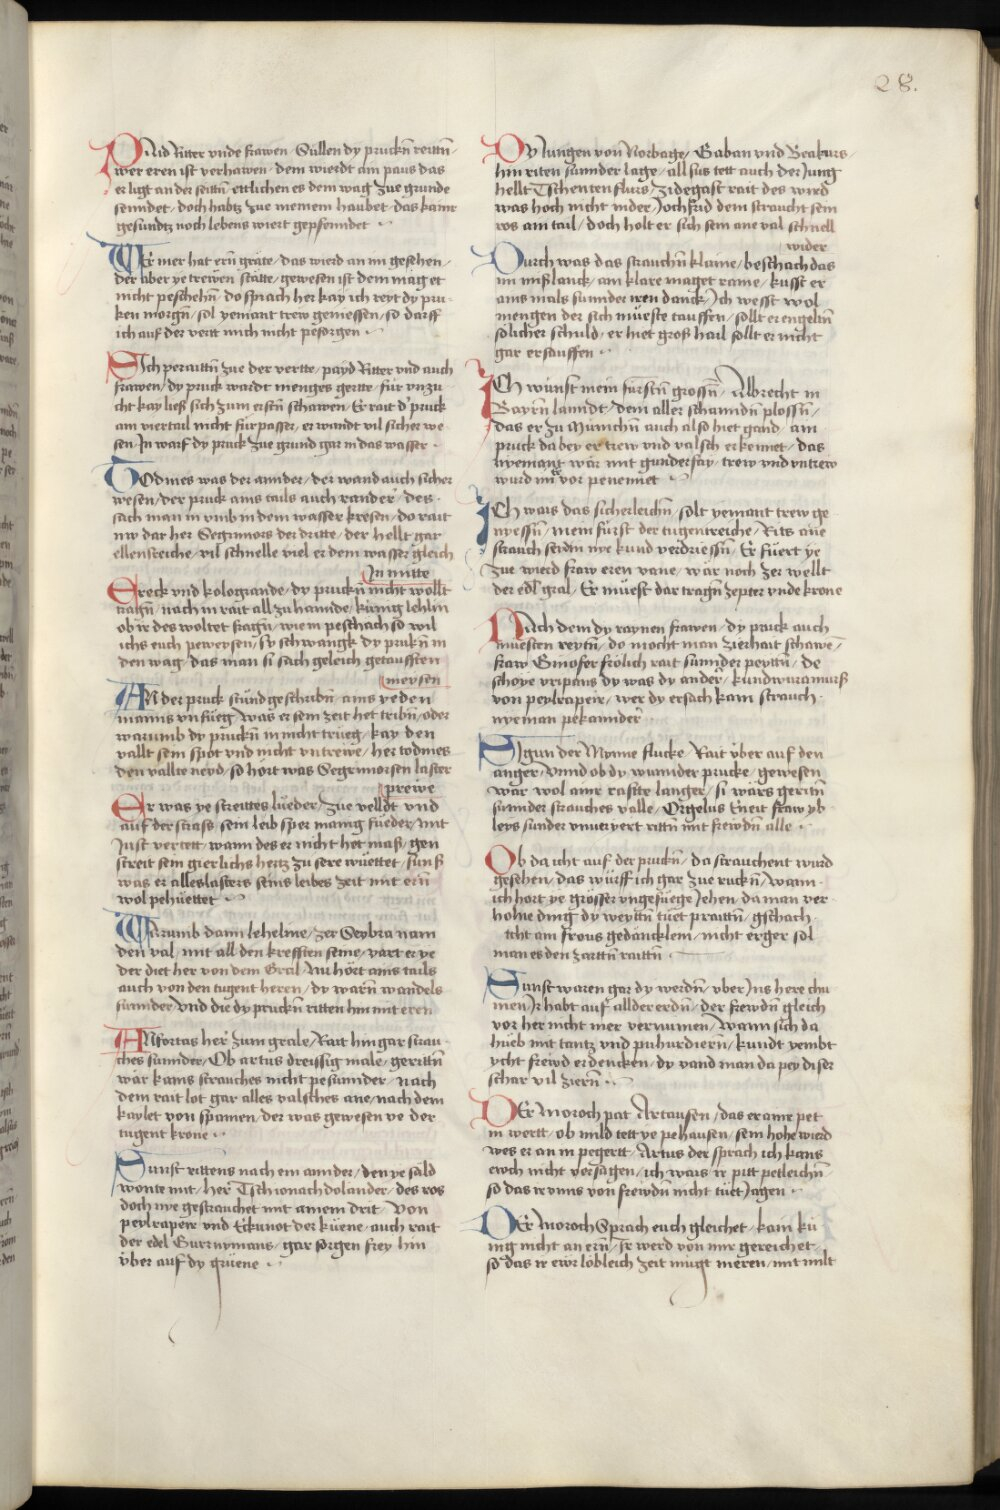 28.
Paid Ritter vnde frawen / Süllen dy pruckn̄ reittn̄ /
wer eren ist verhawen / dem wierdt am paus das
er ligt an der seittn̄ / ettlichen es dem wag zue grunde
senndet / doch habtz zue meinem haubet / das kainr
gesundtz noch lebens wiert gepfenndet
Wer mer hat ern̄ gräte / das wierd an im gesehen /
der aber ye trewen stätte / gewesen ist dem mag et
nicht peschehn̄ / do sprach her kay ich reyt dy pru
ken morgn̄ / sol yemant trew geniessen / so darff
ich auf der vertt mich nicht pesorgen
Sich peraittn̄ zue der vertte / payd Ritter vnd auch
frawen / dy pruck wardt menges gertte / für vnzu
cht kay ließ sich zum erstn̄ schawen / Er rait d' pruck
am viertail nicht fürpasser / er wandt vil sicher we
sen / In warf dy pruck zue grund gar in das wasser
Todmes was der annder / der wand auch sicher
wesen / der pruck ains tails auch rander / des
sach man in vmb in dem wasser kresen / do rait
nw dar her Segrimors der dritte / der hellt gar
ellensreiche / vil schnelle viel er dem wasser gleich
In mitte
Ereck vnd kologrande / dy pruckn̄ nicht wollt
tragn̄ / nach in rait all zu hannde / künig lehlin
ob ir des woltet fragn̄ / wiem peschach so wil
ichs euch peweysen / sy schwangk dy prukn̄ in
den wag / das man si sach geleich getaufften
meysen
An der pruck stünd geschribn̄ / ains yeden
manns vnfüeg / was er sein zeit het tribn̄ / oder
warumb dy pruckn̄ in nicht trüeg / kay den
vallt sein spot vnd nicht vntrewe / her todmes
den vallte neyd / so hört was Segrimorsen laster
prewe
Er was ye streittes lüeder / zue velldt vnd
auf der strass / sein leib sper manig füeder / mit
Just vertett / wann des er nicht het maß / gen
streit sein gierlichs hertz zu sere wüettet / sunß
was er alles lasters seins leibes zeit mit ern̄
wol pehüettet
Warumb dann lehelme / zer Seybra nam
den val / mit all den krefften seine / vart er ye
der diet her von dem Gral / Nu hört ains tails
auch von den tugent heren / dy warn̄ wandels
sunnder / vnd die dy pruckn̄ ritten hin mit eren
Anfortas her zum grale / Rait hin gar strau
ches sunnder / Ob artus dreissig male / gerittn̄
wär kains strauches nicht pesunnder / nach
dem rait lot gar alles valsches ane / nach dem
kaylet von spanien / der was gewesen ye der
tugent krone
Sunst rittens nach ein annder / den ye säld
wonte mit / her Tschionachdolander / des ros
doch nye gestrauchet mit ainem drit / von
peylrapere vnd Eckunot der küene / auch rait
der edel Gurrnymans / gar sorgen frey hin
vber auf dy grüene
Dy Iungen von Norbage / Gaban vnd Beakurs /
hin riten sunnder lage / all sus tett auch der Jung
hellt Tschentenflurs / zidegast rait des wird
was hoch nicht nider / Joch frid dem straucht sein
ros am tail / doch holt er sich sein ane val schnell
wider
Durch was das strauchn̄ klaine / beschach das
im mißlanck / am klare maget raine / kusst er
ains mals sunnder iren danck / Ich wesst wol
mengen der sich müeste tauffen / sollt er engeltn̄
sölicher schuld / er hiet groß hail sollt er nicht
gar ersauffen
Ich wünst mein fürstn̄ grossn̄ / Albrecht in
Bayrn̄ lanndt / dem aller schanndn̄ plossn̄ /
das er zu Münichn̄ auch also hiet gand / am
pruck dabey er trew vnd valsch erkennet / das
nyemant wär mit gunderfay / trew vnd vntrew
wurd im vor penennet
Ich wais das sicherleichn̄ / solt yemant trew ge
nyessn̄ / mein fürst der tugentreiche / Rits ane
strauch seidn̄ nye kund verdriessn̄ / Er füert ye
zue wierd fraw eren vane / wär noch zer wellt
der edl gral / Er müest dar tragn̄ zepter vnde krone
Nach dem dy raynen frawen / dy pruck auch
muesten reytn̄ / do mocht man zierhait schawē /
fraw Ginofer frölich rait sunnder peyttn̄ / de
schoye vripans dy was dy ander / kundwiramurß
von peylrapeire / wer dy ersach kain strauch
nyeman pekannder
Sigun der Mynne flucke / Rait vber auf den
anger / Vnnd ob dy wunnder prucke / gewesen
wär wol ainr rastte langer / si wärs geritn̄
sunnder strauches valle / Orgelus Eneit fraw yb
leys sunder vnuerxert rittn̄ mit frewdn̄ alle
Ob da icht auf der pruckn̄ / da strauchent wurd
gesehen / das würff ich gar zue ruckn̄ / wann
ich hort ye grösser vngefüege Jehen / da man ver
holne ding dy weyttn̄ tüet praittn̄ / gschach
icht am frous gedäncklein / nicht erger sol
man es den zarttn̄ raittn̄
Sunst waren gar dy werdn̄ / vber Ins here chu
men / Ir habt auf all der erdn̄ / der frewdn̄ gleich
vor her nicht mer vernumen / Wann sich da
hueb mit tantz vnd puhurdiern̄ / kundt yembt
ycht frewd erdencken / dy vand man da pey diser
schar vil ziern̄
Der Moroch pat Artausen / das er ainr pet
in wertt / ob mild tett ye pehausen / sein hohe wierd
wes er an in pegertt / Artus der sprach ich kans
ewch nicht versagen / ich wais ir pitt petleichn̄
so das ir vnns von frewdn̄ nicht tüet Jagen
Der Moroch Sprach euch gleichet / kain kü
nig nicht an ern̄ / Ir werd von mir gereichet
so das ir ewr lobleich zeit mügt meren / mit milt